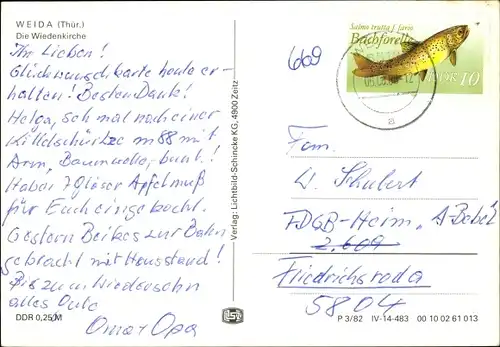 WEIDA (Thür.)
Die Wiedenkirche
Ihr Lieben!
Glückwunschkarte heute er-
halten! Besten Dank!
Helga, seh mal nach einer
Kittelschürze m88 mit
Arm, Baumwolle, bunt!
Habe 7 Gläser Apfelmuß
für Euch eingekocht.
Gestern Beikes zur Bahn
gebracht mit Hausstand!
Bis zum Wiedersehn
alles Gute
Oma + Opa
DDR 0,25 M
Verlag: Lichtbild-Schincke KG, 4900 Zeitz
669
Salmo trutta f. fario
Bachforelle
DDR 10
a
Fam.
W. Schubert
FDGB-Heim "A-Bebel
2.609
Friedrichroda
5804
P 3/82 IV-14-483 00 10 02 61 013